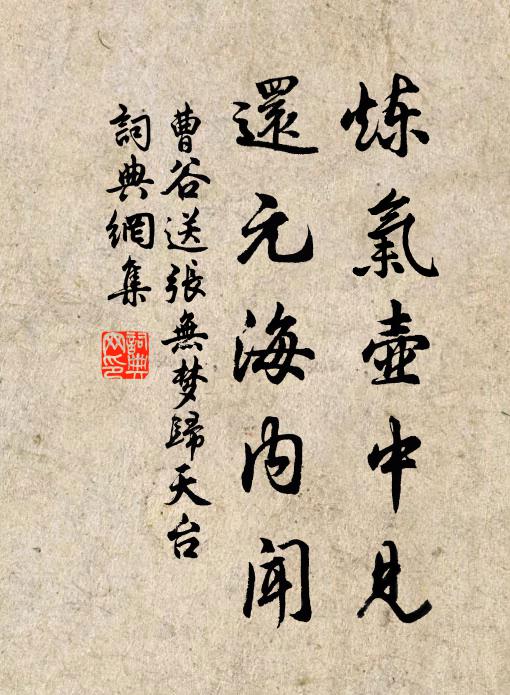 炼氣壺中見
還元海内聞
曹谷送張無梦歸天台
詞典網集
詞典
网印